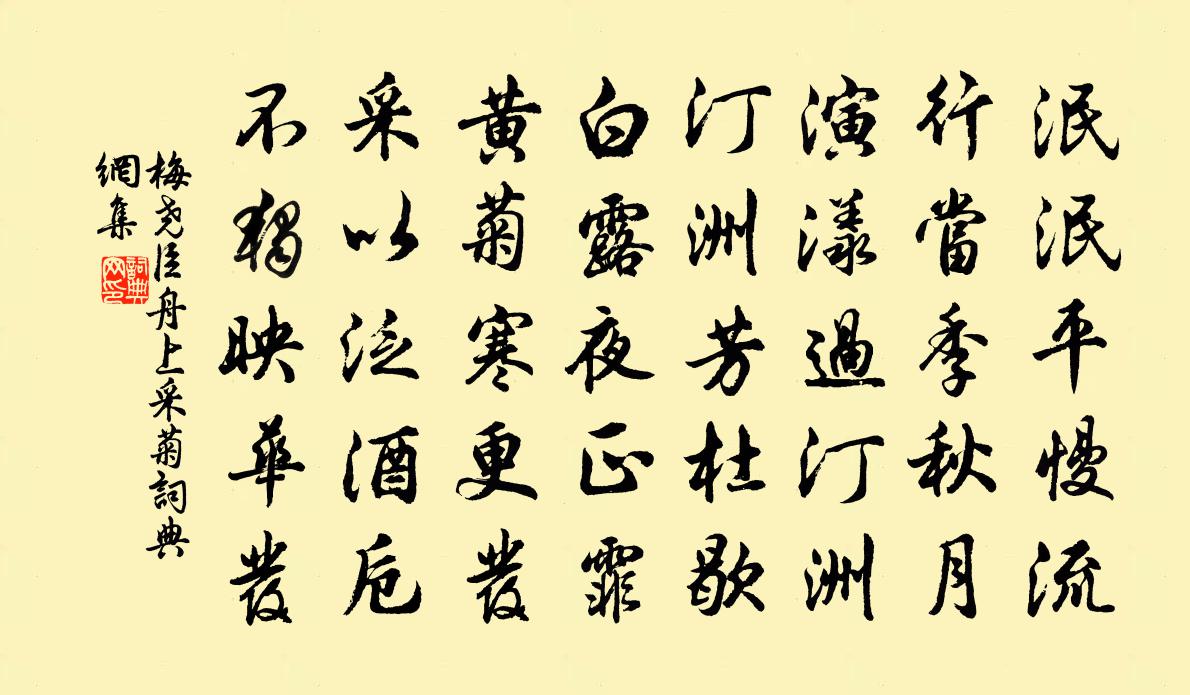 泯泯平慢流
行當季秋月
演漾過汀洲
汀洲芳杜歇
白露夜正霏
黃菊寒更發
采以泛酒卮
不獨映華發
梅堯臣舟上采菊詞典
網集
詞典
网印